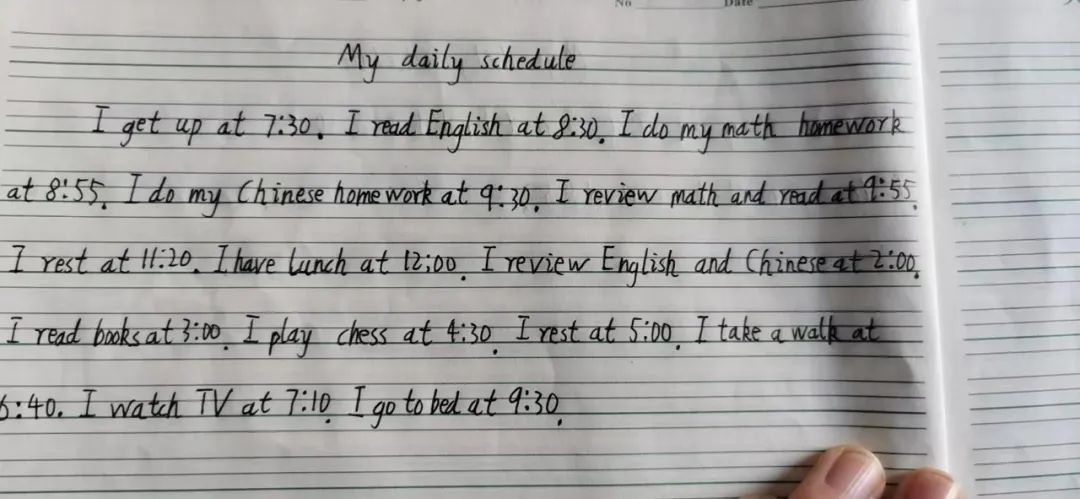 No Date
My daily schedule
I get up at 7:30. I read English at 8:30. I do my math homework
at 8:55. I do my Chinese homework at 9:30. I review math and read at 9:55.
I rest at 11:20. I have lunch at 12:00. I review English and Chinese at 2:00.
I read books at 3:00. I play chess at 4:30. I rest at 5:00. I take a walk at
6:40. I watch TV at 7:10. I go to bed at 9:30.